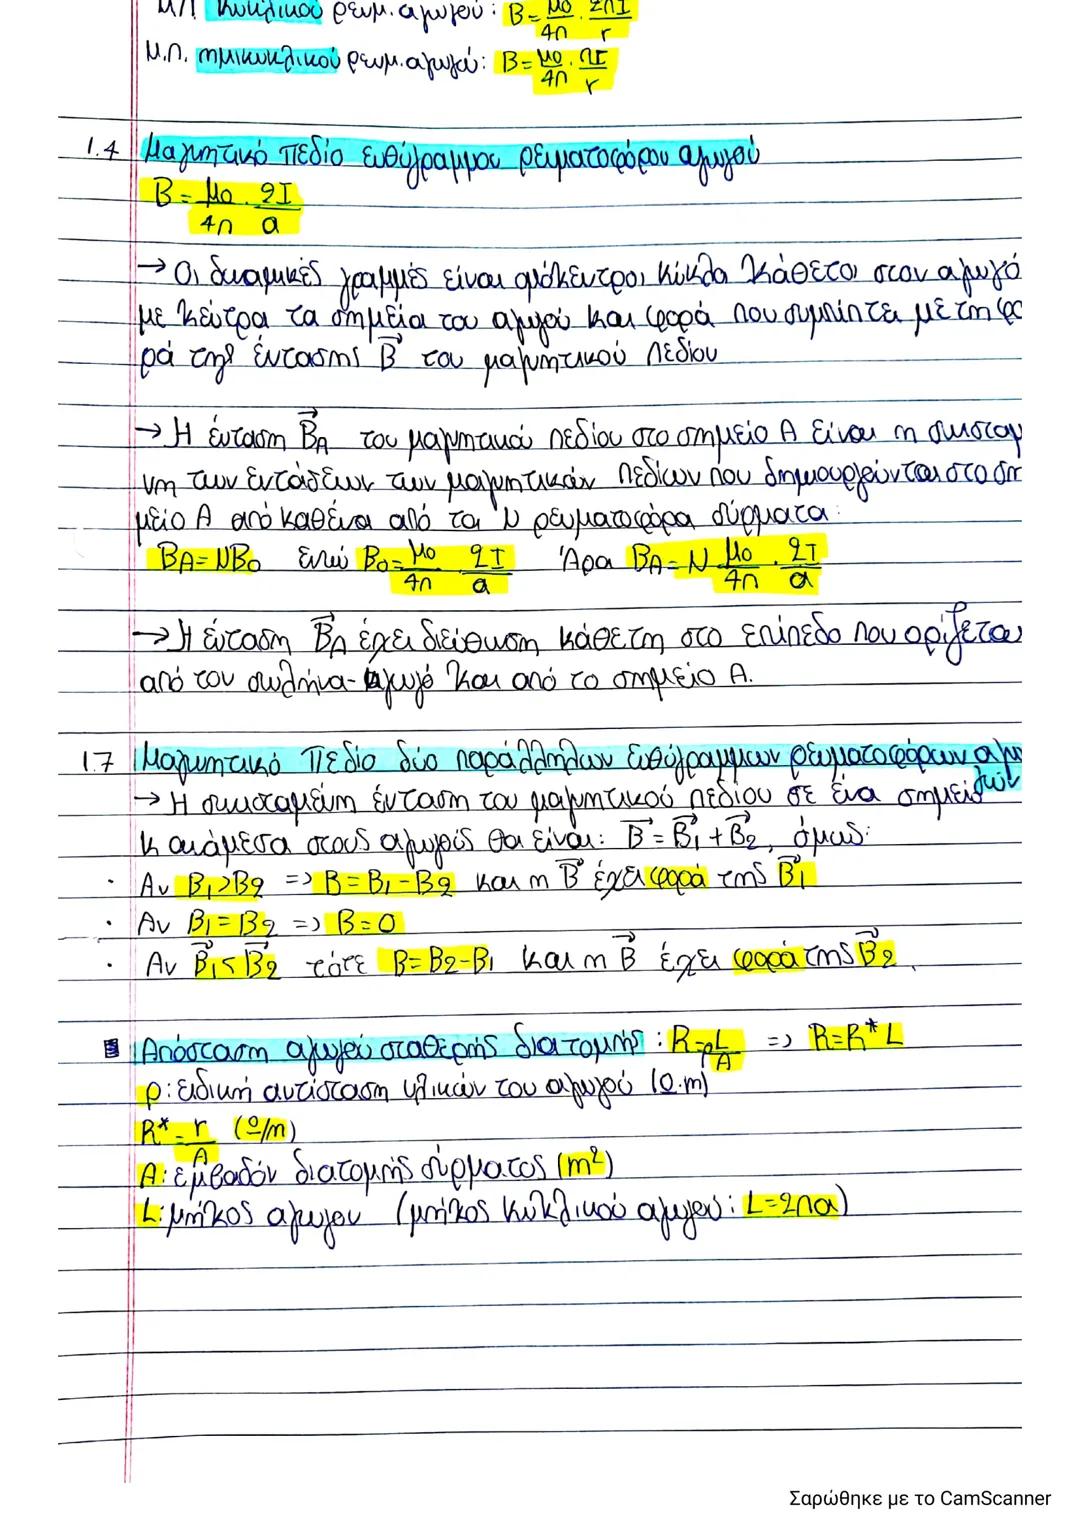 Μ.Π. κυκλικού ρευμ. αγωγού: B = μο/4π · 2πI/r
Μ.Π. ημικυκλικού ρευμ. αγωγού: B = μο/4π · πI/r
1.4 Μαγνητικό πεδίο ευθύγραμμου ρευματοφόρου αγωγού
B = μο/4π · 2I/a
→ Οι δυναμικές γραμμές είναι ομόκεντροι κύκλοι κάθετοι στον αγωγό
με κέντρα τα σημεία του αγωγού και φορά που συμπίπτει με τη φο
ρά της έντασης B⃗ του μαγνητικού πεδίου
→ Η ένταση B⃗A του μαγνητικού πεδίου στο σημείο Α είναι η συνισταμ
νη των εντάσεων των μαγνητικών πεδίων που δημιουργούνται στο ση
μείο Α από καθένα από τα N ρευματοφόρα σύρματα:
BA = NBo ενώ Bo = μο/4π · 2I/a Άρα BA = N μο/4π · 2I/a
→ Η ένταση B⃗A έχει διεύθυνση κάθετη στο επίπεδο που ορίζεται
από τον σωλήνα-αγωγό και από το σημείο Α.
1.7 Μαγνητικό πεδίο δύο παράλληλων ευθύγραμμων ρευματοφόρων αγω
γών
→ Η συνισταμένη ένταση του μαγνητικού πεδίου σε ένα σημείο
Κ ανάμεσα στους αγωγούς θα είναι: B⃗ = B⃗1 + B⃗2, όμως:
· Αν B1>B2 => B = B1 - B2 και η B⃗ έχει φορά της B⃗1
· Αν B1 = B2 => B = 0
· Αν B⃗1 < B⃗2 τότε B = B2 - B1 και η B⃗ έχει φορά της B⃗2
Απόσταση αγωγού σταθερής διατομής: R = ρL/A => R = R* L
ρ: ειδική αντίσταση υλικών του αγωγού (Ω·m)
R* = r/A (Ω/m)
A: εμβαδόν διατομής σύρματος (m²)
L: μήκος αγωγου (μήκος κυκλικού αγωγού: L = 2πa)
Σαρώθηκε με το CamScanner